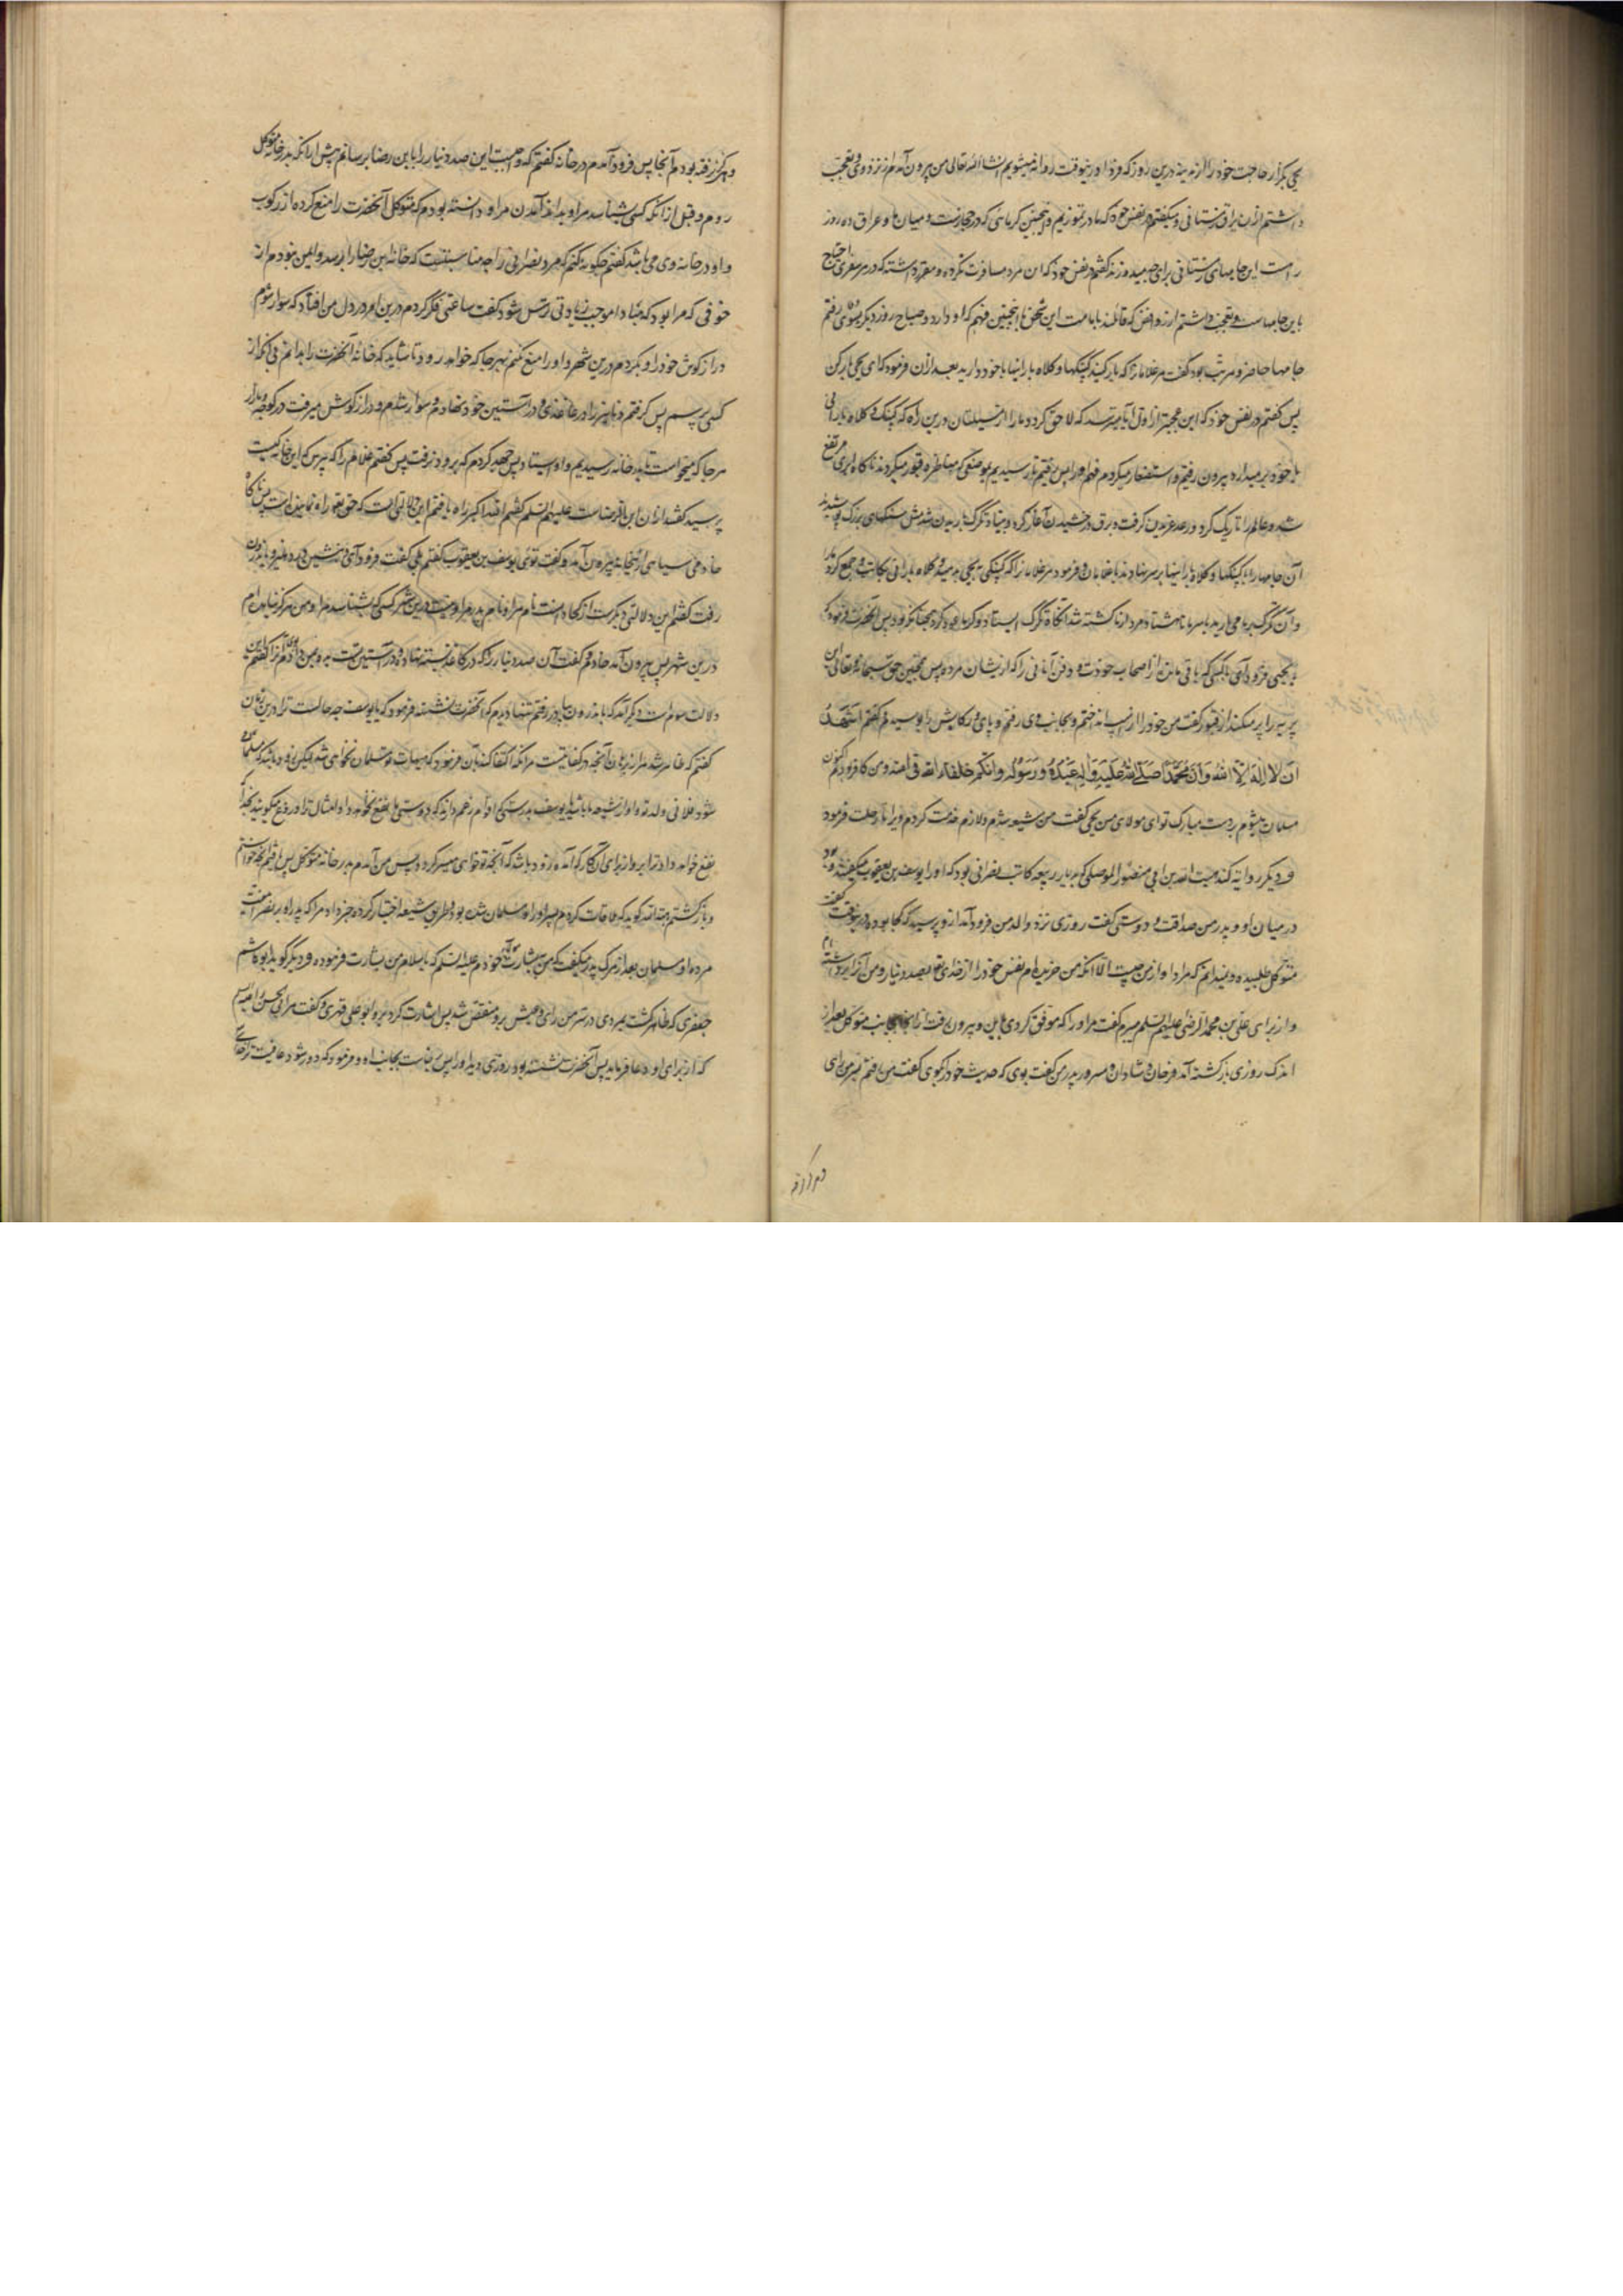 یحیی بگزار حاجت خود را از مدینه درین روز که فردا درینوقت روانه میشویم انشاء الله تعالی من بیرون آمدم از نزد وی و تعجب
داشتم ازان یراق زمستانی و میگفتم در نفس خود که ما در تموزیم و همچنین گرمائی که در حجازست و میان ما و عراق ده روز
راهست این جامهای زمستانی برای چه میدوزند گفتم در نفس خود که این مرد مسافرت نکرده و مقرر داشته که در هر سفری احتیاج
باین جامهاست و تعجب داشتم از روافض که قائلند بامامت این شخص با اینچنین فهم که او دارد و صباح روز دیگر بسوی وی رفتم
جامها حاضر و مرتب بود گفت مر غلامانرا که بار کنید کپنکها و کلاه بارانیها با خود دارید بعد ازان فرمود که ای یحیی بار کن
پس گفتم در نفس خود که این عجبتر از اول آیا میترسد که لاحق گردد ما را زمستان درین راه که کپنک و کلاه بارانی
با خود برمیدارد بیرون رفتیم و استصغار میکردم فهم او را پس رفتیم تا رسیدیم بموضعی که مناظره قبور میکردند ناگاه ابری مرتفع
شد و عالم را تاریک کرد و رعد غریدن گرفت و برق درخشیدن آغاز کرد و بنیاد تگرگ باریدن شد مثل سنگهای بزرگ پوشیدند
آن جامها را با کپنکها و کلاه بارانیها بر سر نهادند با غلامان و فرمود مر غلامانرا که کپنکی به یحیی بدهید و کلاه بارانی بکاتب و جمع کرد ما را
و آن تگرگ بر ما می بارید تا هشتاد مرد از ما کشته شد آنگاه تگرگ ایستاد و گرما عود کرد همچنانکه بود پس آنحضرت فرمود که
یا یحیی فرود آی با کسی که باقی مانده از اصحاب خودت و دفن کن آنانی را که از ایشان مرده پس همچنین حق سبحانه و تعالی این
بریه را پر میکند از قبور گفت من خود را از اسپ انداختم و بجانب وی رفتم و پای و رکابش را بوسیدم و گفتم اَشهَدُ
اَن لا اِلهَ اِلّا اللهُ وَاَنَّ مُحَمَّداً صَلَّی اللهُ عَلَیهِ وَآلِهِ عَبدُهُ وَرَسُولُهُ وانکم خلفاء الله فی ارضه و من کافر بودم اکنون
مسلمان میشوم بر دست مبارک تو ای مولای من یحیی گفت من شیعه شدم و ملازم خدمت کردم ویرا تا رحلت فرمود
و دیگر روایه کند هبت الله بن ابی منصور الموصلی که بدیار ربیعه کاتب نصرانی بود که او را یوسف بن یعقوب میگفتند و بود
در میان او و پدر من صداقت و دوستی گفت روزی نزد والد من فرود آمد ازو پرسید که کجا بوده درینوقت گفت
متوکل طلبیده و نمیدانم که مراد او از من چیست الا آنکه من خریده ام نفس خود را از خدای تعالی بصد دینار و من آنرا برداشته ام
و از برای علی بن محمد الرضی علیهم السلم میبرم گفت مر او را که موفق کردی باین و بیرون رفت از انجا بجانب متوکل بعد از
اندک روزی بازگشته آمد فرحان و شادان و مسرور پدر من گفت بوی که حدیث خود را بگوی گفت من رفتم بسر من رای
و هرگز نرفته بودم آنجا پس فرود آمدم در خانه گفتم که واجبست این صد دینار را بابن رضا برسانم پیش از آنکه بدرخانه متوکل
روم و قبل از آنکه کسی شناسد مرا و بداند آمدن مرا و دانسته بودم که متوکل آنحضرت را منع کرده از رکوب
و او در خانه وی می باشد گفتم چگونه کنم که مرد نصرانی را چه مناسبتست که خانه ابن رضا را پرسد و ایمن نبودم از
خوفی که مرا بود که مبادا موجب زیادتی ترس شود گفت ساعتی فکر کردم درین امر در دل من افتاد که سوار شوم
دراز گوش خود را و بگردم درین شهر و او را منع نکنم بهر جا که خواهد رود تا شاید که خانه آنحضرت را بدانم بی آنکه از
کسی پرسم پس گرفتم دنانیر را در کاغذی و در آستین خود نهادم و سوار شدم و دراز گوش میرفت در کوچه و بازار
هر جا که میخواست تا بدر خانه رسیدیم و او ایستاد پس جهد کردم که برود نرفت پس گفتم غلام را که بپرس که این خانه کیست
پرسید گفتند ازان ابن الرضاست علیهم السلم گفتم الله اکبر راه یافتم این دلالتی است که حق تعالی راه نمایندست پس ناگاه
خادمی سیاهی از انجانه بیرون آمد و گفت توئی یوسف بن یعقوب گفتم بلی گفت فرود آی و بنشین در دهلیز و باندرون
رفت گفتم این دلالتی دیگرست از کجا دانست نام مرا و نام پدر مرا و نیست درین شهر کسی که بشناسد مرا و من هرگز نیامده ام
درین شهر پس بیرون آمد خادم و گفت آن صد دینار را که در کاغذ بسته نهاده و در آستین تست بده بمن دادم آنرا گفتم این
دلالت سوم است و دیگر آمد که باندرون بیا پس رفتم تنها دیدم که آنحضرت نشسته فرمود که یا یوسف چه حالست ترا درین زمان
گفتم که ظاهر شد مرا از برهان آنچه در کفایتست مر آنکه اکتفا کند بآن فرمود که هیهات تو مسلمان نخواهی شد لیکن زود باشد که مسلمان
شود فلانی ولد تو و او از شیعه ما باشد یا یوسف بدرستی که اقوام زعم دارند که دوستی ما نفع نخواهد داد امثال ترا دروغ میگویند بخدا که
نفع خواهد داد ترا برو از برای آن کار که آمده زود باشد که آنچه تو خواهی میسر گردد پس من آمدم بدر خانه متوکل پس یافتم آنچه خواستم
و بازگشتم هبة الله گوید که ملاقات کردم پسر او را و مسلمان شده بود و طریق شیعه اختیار کرده خبر داد مرا که پدر او بر نصرانیت
مرده و او مسلمان بعد از مرگ پدر میگفت که من بشارت مولای خودم علیه السلم که باسلام من بشارت فرموده و دیگر گوید ابو هاشم
جعفری که ظاهر گشت بمردی در سر من رای و عیش برو منغص شد پس اشارت کرد برو ابو علی فهری و گفت مر ابی الحسن
که از برای او دعا فرماید پس آنحضرت نشسته بود روزی دید او را پس برخاست بجانب او و فرمود که دور شود عافیت